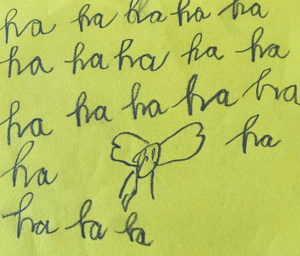 ha ha ha ha ha
ha ha ha ha ha
ha ha ha ha ha
ha
ha
ha ha ha